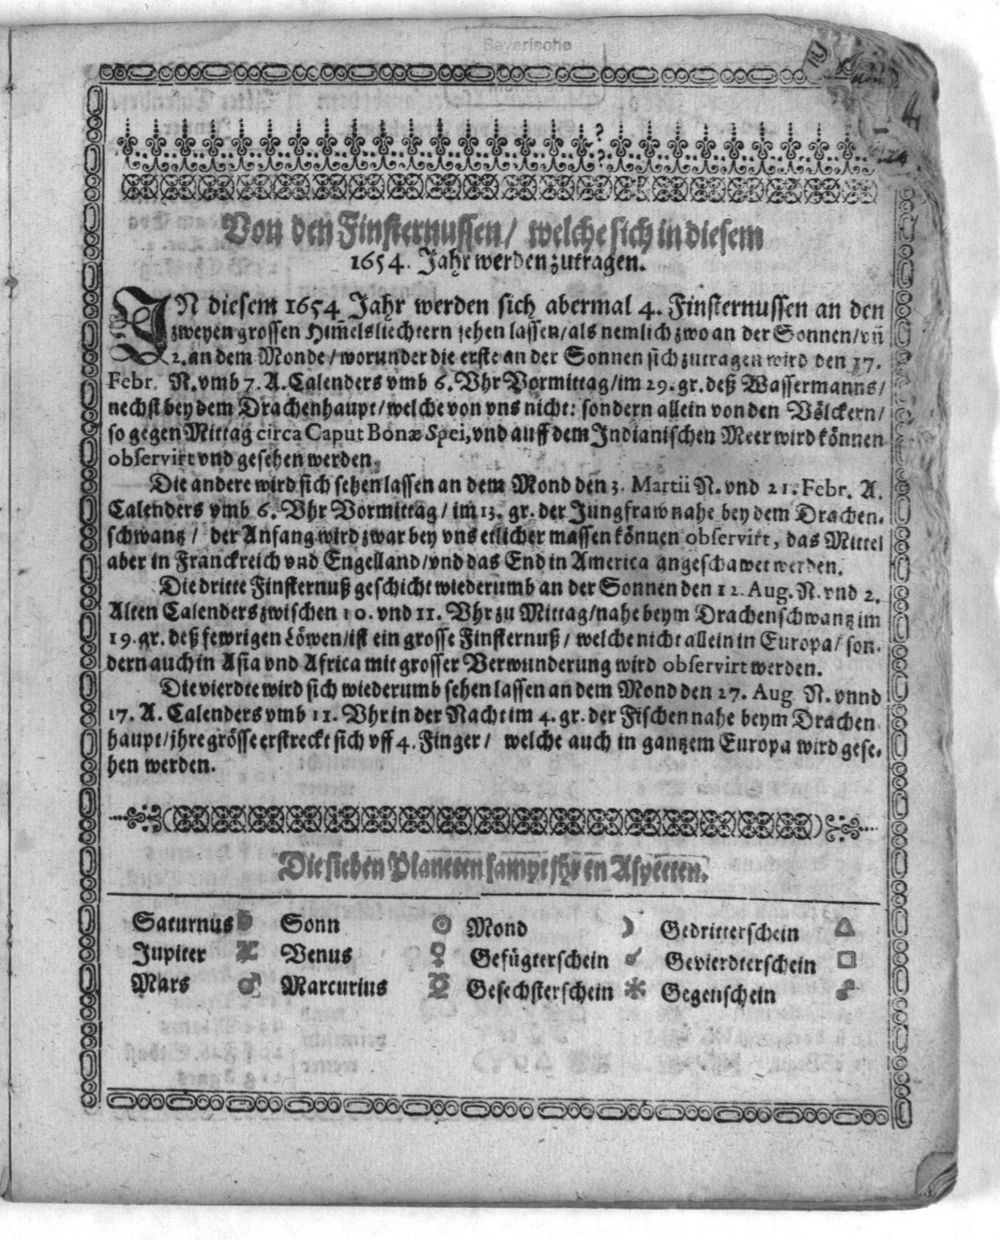 Bayerische
Von den Finsternussen / welche sich in diesem
1654. Jahr werden zutragen.
IN diesem 1654 Jahr werden sich abermal 4. Finsternussen an den
zweyen grossen Him̃elsliechtern sehen lassen / als nemlich zwo an der Sonnen / vñ
2. an dem Monde / worunder die erste an der Sonnen sich zutragen wird den 17.
Febr. N. vmb 7. A. Calenders vmb 6. Vhr Vormittag / im 29. gr. deß Wassermanns /
nechst bey dem Drachenhaupt / welche von vns nicht: sondern allein von den Völckern /
so gegen Mittag circa Caput Bonæ Spei, vnd auff dem Indianischen Meer wird können
observirt vnd gesehen werden.
Die andere wird sich sehen lassen an dem Mond den 3. Martii N. vnd 21. Febr. A.
Calenders vmb 6. Vhr Vormittag / im 13. gr. der Jungfraw nahe bey dem Drachen-
schwantz / der Anfang wird zwar bey vns etlicher massen können observirt, das Mittel
aber in Franckreich vnd Engelland / vnd das End in America angeschawet werden.
Die dritte Finsternuß geschicht wiederumb an der Sonnen den 12. Aug. N. vnd 2.
Alten Calenders zwischen 10. vnd 11. Vhr zu Mittag / nahe beym Drachenschwantz im
19. gr. deß fewrigen Löwen / ist ein grosse Finsternuß / welche nicht allein in Europa / son-
dern auch in Asia vnd Africa mit grosser Verwunderung wird observirt werden.
Die vierdte wird sich wiederumb sehen lassen an dem Mond den 27. Aug N. vnnd
17. A. Calenders vmb 11. Vhr in der Nacht im 4. gr. der Fischen nahe beym Drachen
haupt / jhre grösse erstreckt sich vff 4. Finger / welche auch in gantzem Europa wird gese-
hen werden.
Die sieben Planeten sampt jhren Aspecten.
Saturnus ♄ Sonn ☉ Mond ☽ Gedritterschein △
Jupiter ♃ Venus ♀ Gefügterschein ☌ Gevierdterschein □
Mars ♂ Marcurius ☿ Gesechsterschein ⚹ Gegenschein ☍